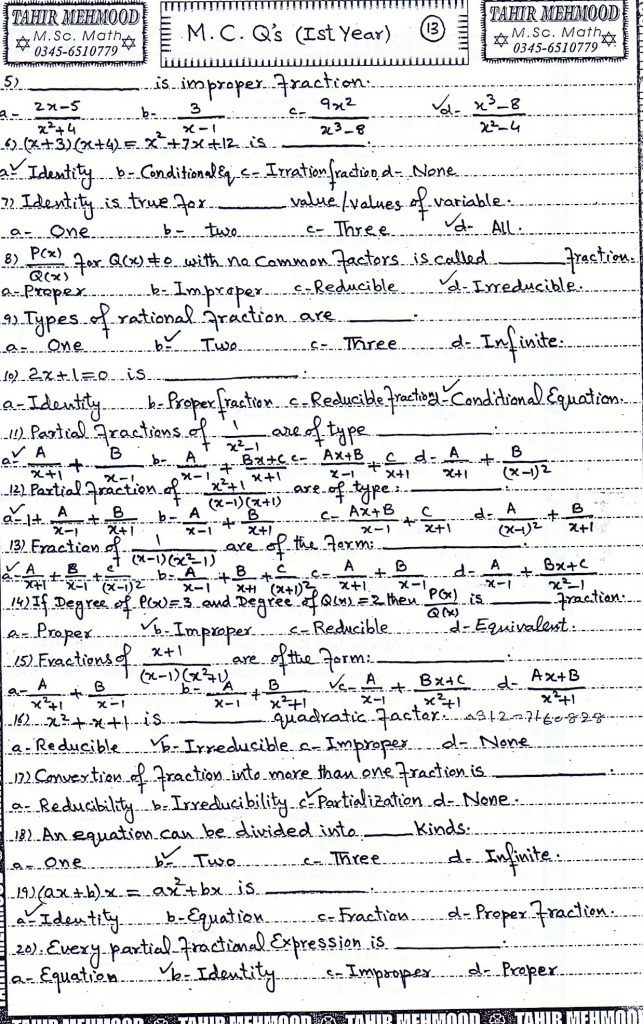 TAHIR MEHMOOD
M.Sc. Math
0345-6510779
M.C.Q's (Ist Year) 13
TAHIR MEHMOOD
M.Sc. Math
0345-6510779
5) ______ is improper Fraction.
a- 2x-5/x²+4 b- 3/x-1 c- 9x²/x³-8 ✓d- x³-8/x²-4
6) (x+3)(x+4) = x²+7x+12 is ______.
a✓ Identity b- Conditional Eq c- Irration fraction d- None
7) Identity is true For ______ value/values of variable.
a- One b- two c- Three ✓d- All.
8) P(x)/Q(x) For Q(x)≠0 with no Common Factors is called ______ Fraction.
a- Proper b- Improper c- Reducible ✓d- Irreducible.
9) Types of rational Fraction are ______
a- One b✓ Two c- Three d- Infinite.
10) 2x+1=0 is ______.
a- Identity b- Proper fraction c- Reducible Fraction d✓ Conditional Equation.
11) Partial Fractions of 1/x²-1 are of type ______.
a✓ A/x+1 + B/x-1 b- A/x-1 + Bx+c/x+1 c- Ax+B/x-1 + c/x+1 d- A/x+1 + B/(x-1)²
12) Partial Fraction of x²+1/(x-1)(x+1) are of type: ______.
a✓ 1+ A/x-1 + B/x+1 b- A/x-1 + B/x+1 c- Ax+B/x-1 + C/x+1 d- A/(x-1)² + B/x+1
13) Fraction of 1/(x-1)(x²-1) are of the Form: ______.
✓a- A/x+1 + B/x-1 + c/(x-1)² b- A/x-1 + B/x+1 + c/(x+1)² c- A/x+1 + B/x-1 d- A/x-1 + Bx+c/x²-1
14) If Degree of P(x)=3 and Degree of Q(x)=2 then P(x)/Q(x) is ______ Fraction.
a- Proper ✓b- Improper c- Reducible d- Equivalent.
15) Fractions of x+1/(x-1)(x²+1) are of the Form: ______.
a- A/x²+1 + B/x-1 b- A/x-1 + B/x²+1 ✓c- A/x-1 + Bx+c/x²+1 d- Ax+B/x²+1
16) x²+x+1 is ______ quadratic Factor.
a- Reducible ✓b- Irreducible c- Improper d- None
17) Convertion of Fraction into more than one Fraction is ______.
a- Reducibility b- Irreducibility c✓ Partialization d- None.
18) An equation can be divided into ____ Kinds.
a- One b✓ Two c- Three d- Infinite.
19) (ax+b)x = ax²+bx is ______.
a✓ Identity b- Equation c- Fraction d- Proper Fraction.
20) Every partial Fractional Expression is ______.
a- Equation ✓b- Identity c- Improper d- Proper
TAHIR MEHMOOD TAHIR MEHMOOD